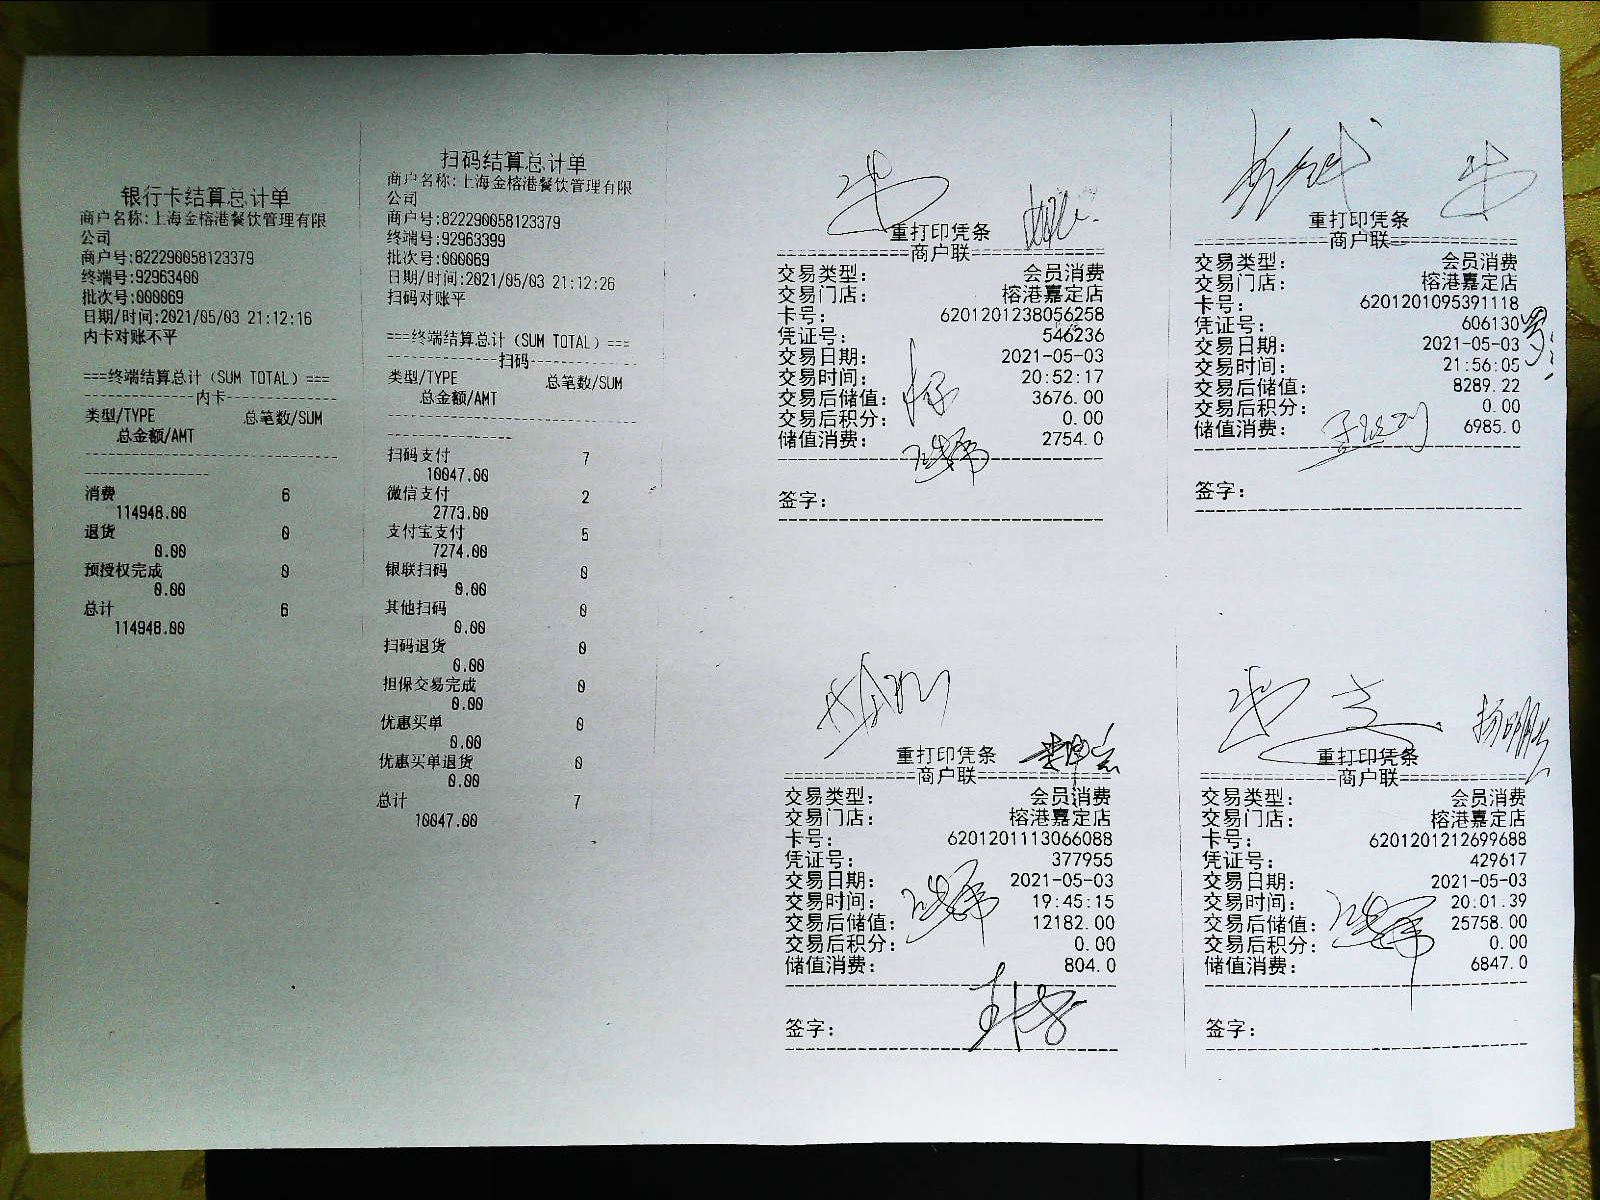 银行卡结算总计单
商户名称:上海金榕港餐饮管理有限
公司
商户号:822290058123379
终端号:92963400
批次号:000069
日期/时间:2021/05/03 21:12:16
内卡对账不平
===终端结算总计（SUM TOTAL）===
内卡
类型/TYPE 总笔数/SUM
总金额/AMT
消费 6
114948.00
退货 0
0.00
预授权完成 0
0.00
总计 6
114948.00
扫码结算总计单
商户名称:上海金榕港餐饮管理有限
公司
商户号:822290058123379
终端号:92963399
批次号:000069
日期/时间:2021/05/03 21:12:26
扫码对账平
===终端结算总计（SUM TOTAL）===
扫码
类型/TYPE 总笔数/SUM
总金额/AMT
扫码支付 7
10047.00
微信支付 2
2773.00
支付宝支付 5
7274.00
银联扫码 0
0.00
其他扫码 0
0.00
扫码退货 0
0.00
担保交易完成 0
0.00
优惠买单 0
0.00
优惠买单退货 0
0.00
总计 7
10047.00
重打印凭条
商户联
交易类型: 会员消费
交易门店: 榕港嘉定店
卡号: 6201201238056258
凭证号: 546236
交易日期: 2021-05-03
交易时间: 20:52:17
交易后储值: 3676.00
交易后积分: 0.00
储值消费: 2754.0
签字:
重打印凭条
商户联
交易类型: 会员消费
交易门店: 榕港嘉定店
卡号: 6201201095391118
凭证号: 606130
交易日期: 2021-05-03
交易时间: 21:56:05
交易后储值: 8289.22
交易后积分: 0.00
储值消费: 6985.0
签字:
重打印凭条
商户联
交易类型: 会员消费
交易门店: 榕港嘉定店
卡号: 6201201113066088
凭证号: 377955
交易日期: 2021-05-03
交易时间: 19:45:15
交易后储值: 12182.00
交易后积分: 0.00
储值消费: 804.0
签字:
重打印凭条
商户联
交易类型: 会员消费
交易门店: 榕港嘉定店
卡号: 6201201212699688
凭证号: 429617
交易日期: 2021-05-03
交易时间: 20:01:39
交易后储值: 25758.00
交易后积分: 0.00
储值消费: 6847.0
签字: